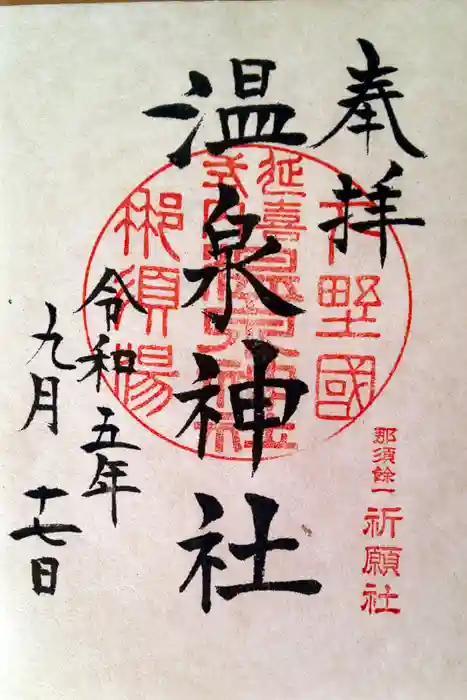 奉拝
下野國
延喜式内
温泉神社
那須湯
令和五年
九月十七日
那須餘一
祈願社